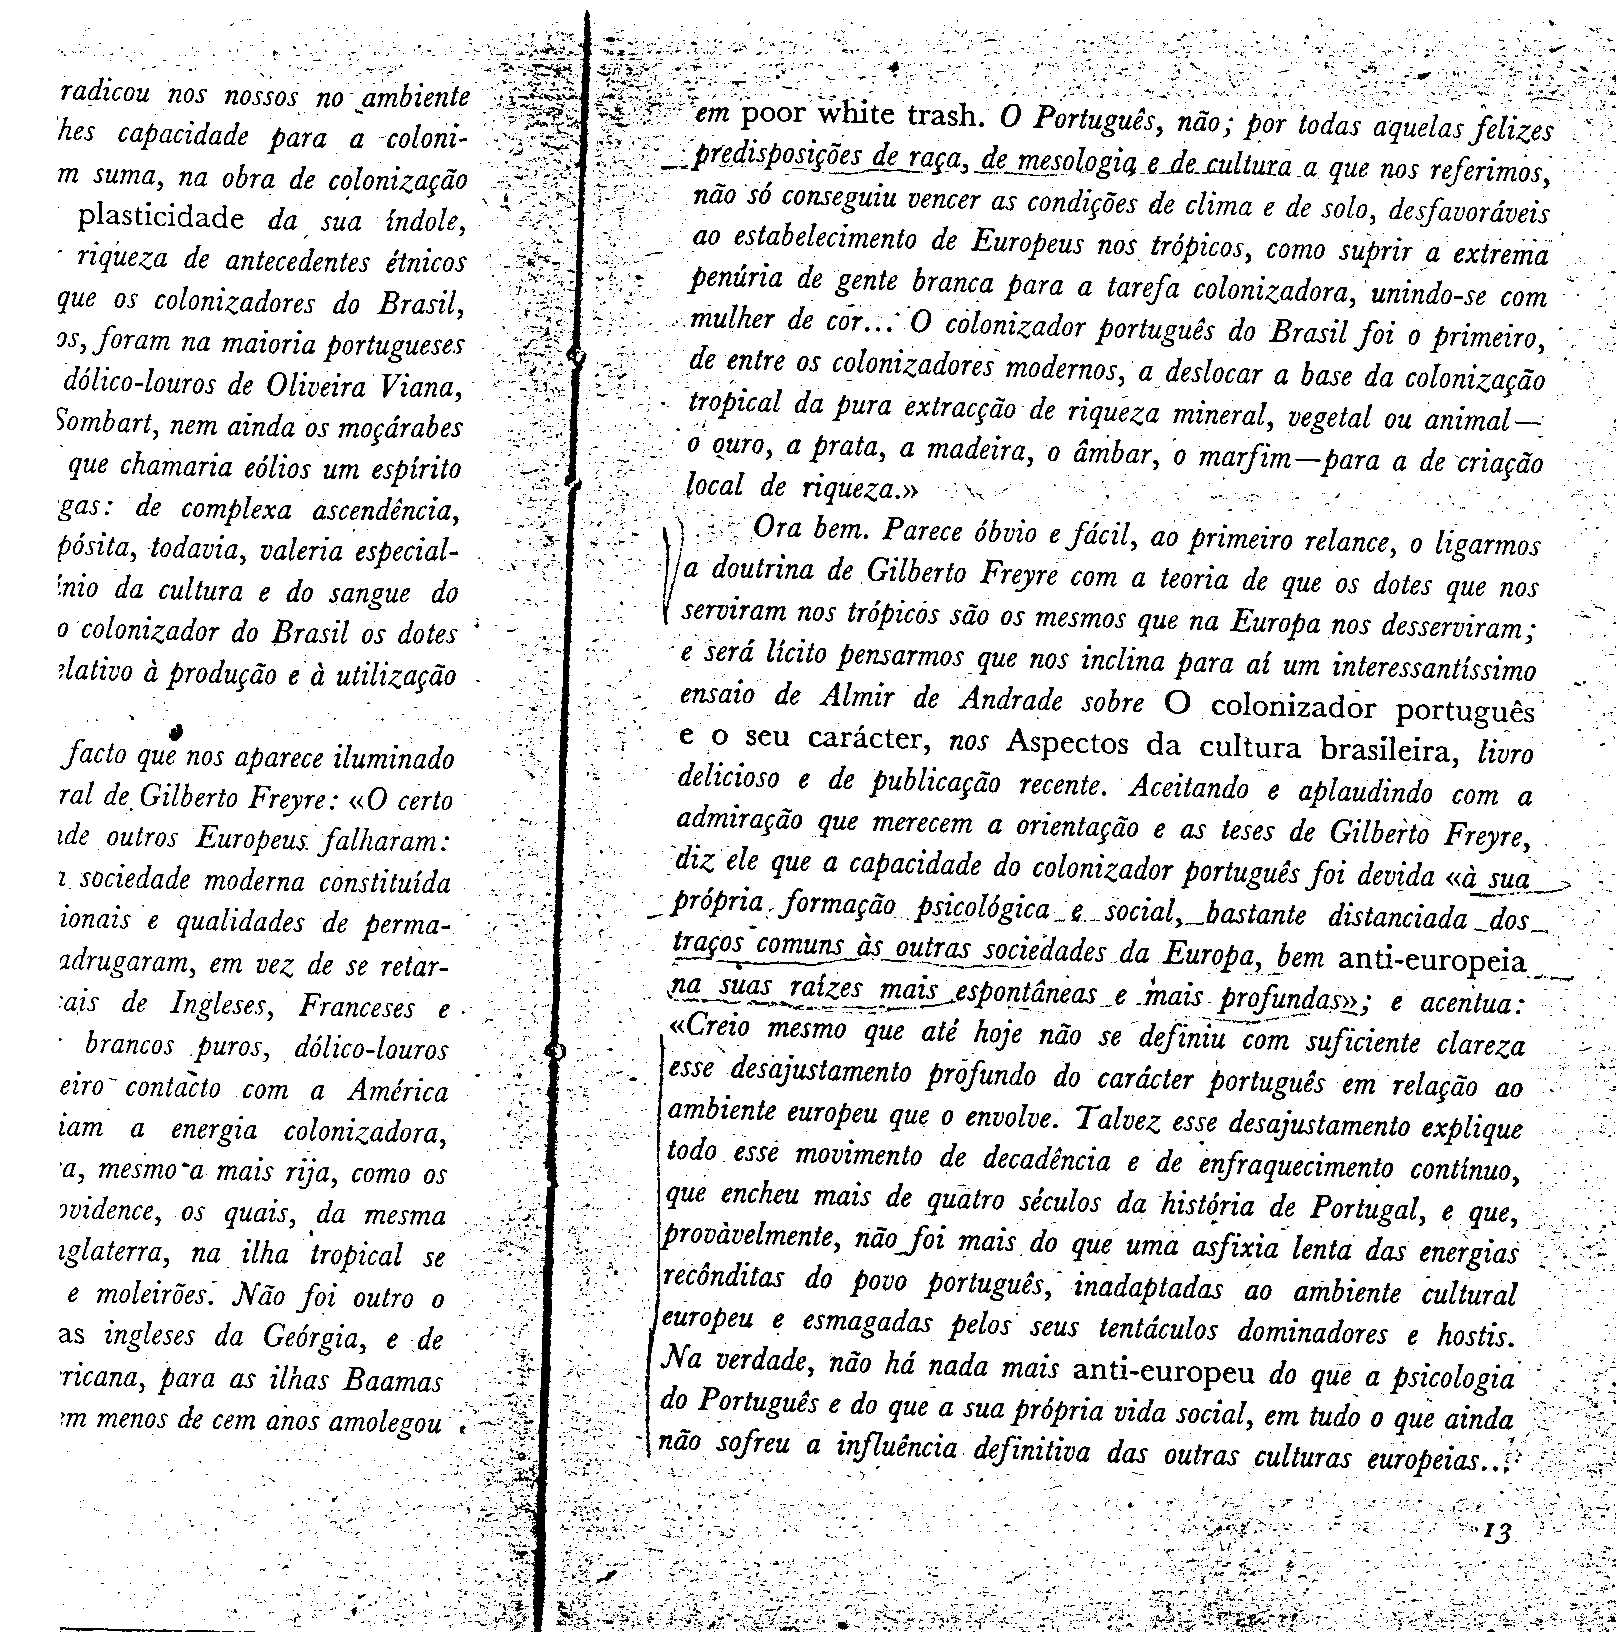 radicou nos nossos no ambiente
hes capacidade para a coloni-
m suma, na obra de colonização
plasticidade da sua índole,
riqueza de antecedentes étnicos
que os colonizadores do Brasil,
os, foram na maioria portugueses
dólico-louros de Oliveira Viana,
Sombart, nem ainda os moçárabes
que chamaria eólios um espírito
gas: de complexa ascendência,
pósita, todavia, valeria especial-
nio da cultura e do sangue do
o colonizador do Brasil os dotes
elativo à produção e à utilização
facto que nos aparece iluminado
ral de Gilberto Freyre: «O certo
nde outros Europeus falharam:
a sociedade moderna constituída
ionais e qualidades de perma-
adrugaram, em vez de se retar-
ais de Ingleses, Franceses e
brancos puros, dólico-louros
eiro contacto com a América
iam a energia colonizadora,
a, mesmo a mais rija, como os
ovidence, os quais, da mesma
nglaterra, na ilha tropical se
e moleirões. Não foi outro o
as ingleses da Geórgia, e de
ricana, para as ilhas Baamas
em menos de cem anos amolegou
em poor white trash. O Português, não; por todas aquelas felizes
predisposições de raça, de mesologia e de cultura a que nos referimos,
não só conseguiu vencer as condições de clima e de solo, desfavoráveis
ao estabelecimento de Europeus nos trópicos, como suprir a extrema
penúria de gente branca para a tarefa colonizadora, unindo-se com
mulher de cor... O colonizador português do Brasil foi o primeiro,
de entre os colonizadores modernos, a deslocar a base da colonização
tropical da pura extracção de riqueza mineral, vegetal ou animal—
o ouro, a prata, a madeira, o âmbar, o marfim—para a de criação
local de riqueza.»
Ora bem. Parece óbvio e fácil, ao primeiro relance, o ligarmos
a doutrina de Gilberto Freyre com a teoria de que os dotes que nos
serviram nos trópicos são os mesmos que na Europa nos desserviram;
e será lícito pensarmos que nos inclina para aí um interessantíssimo
ensaio de Almir de Andrade sobre O colonizador português
e o seu carácter, nos Aspectos da cultura brasileira, livro
delicioso e de publicação recente. Aceitando e aplaudindo com a
admiração que merecem a orientação e as teses de Gilberto Freyre,
diz ele que a capacidade do colonizador português foi devida «à sua
própria formação psicológica e social, bastante distanciada dos
traços comuns às outras sociedades da Europa, bem anti-europeia
na suas raízes mais espontâneas e mais profundas»; e acentua:
«Creio mesmo que até hoje não se definiu com suficiente clareza
esse desajustamento profundo do carácter português em relação ao
ambiente europeu que o envolve. Talvez esse desajustamento explique
todo esse movimento de decadência e de enfraquecimento contínuo,
que encheu mais de quatro séculos da história de Portugal, e que,
provàvelmente, não foi mais do que uma asfixia lenta das energias
recônditas do povo português, inadaptadas ao ambiente cultural
europeu e esmagadas pelos seus tentáculos dominadores e hostis.
Na verdade, não há nada mais anti-europeu do que a psicologia
do Português e do que a sua própria vida social, em tudo o que ainda
não sofreu a influência definitiva das outras culturas europeias...
13